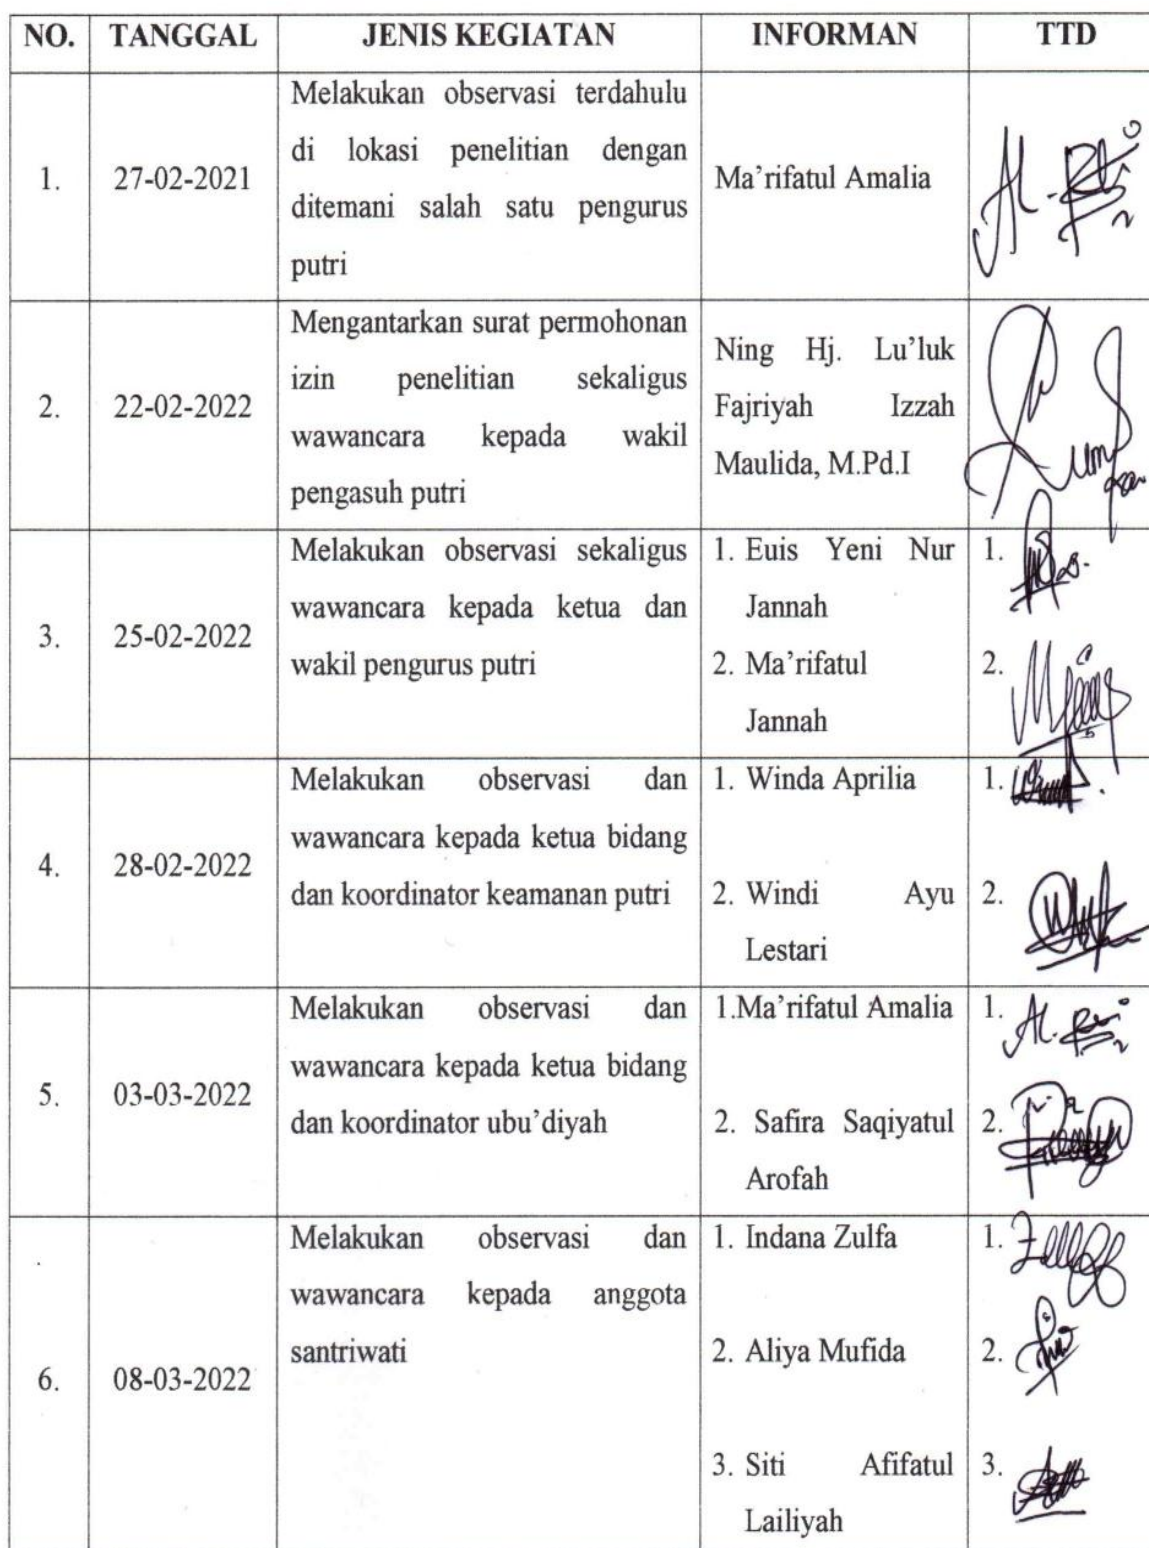 NO. TANGGAL JENIS KEGIATAN INFORMAN TTD
1. 27-02-2021
Melakukan observasi terdahulu
di lokasi penelitian dengan
ditemani salah satu pengurus
putri
Ma'rifatul Amalia
2. 22-02-2022
Mengantarkan surat permohonan
izin penelitian sekaligus
wawancara kepada wakil
pengasuh putri
Ning Hj. Lu'luk
Fajriyah Izzah
Maulida, M.Pd.I
3. 25-02-2022
Melakukan observasi sekaligus
wawancara kepada ketua dan
wakil pengurus putri
1. Euis Yeni Nur
Jannah
2. Ma'rifatul
Jannah
1.
2.
4. 28-02-2022
Melakukan observasi dan
wawancara kepada ketua bidang
dan koordinator keamanan putri
1. Winda Aprilia
2. Windi Ayu
Lestari
1.
2.
5. 03-03-2022
Melakukan observasi dan
wawancara kepada ketua bidang
dan koordinator ubu'diyah
1.Ma'rifatul Amalia
2. Safira Saqiyatul
Arofah
1.
2.
6. 08-03-2022
Melakukan observasi dan
wawancara kepada anggota
santriwati
1. Indana Zulfa
2. Aliya Mufida
3. Siti Afifatul
Lailiyah
1.
2.
3.